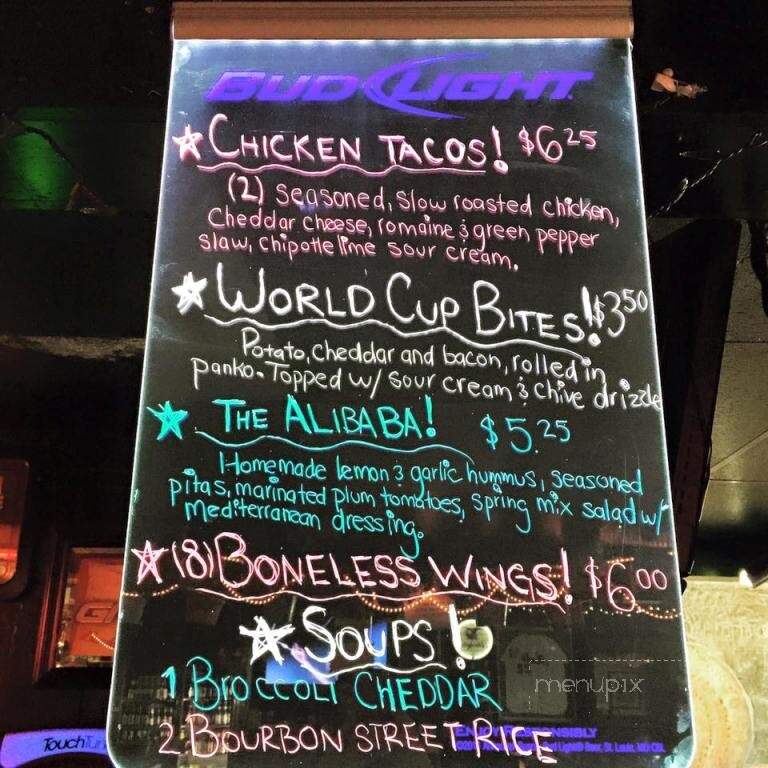 BUD LIGHT
CHICKEN TACOS! $6 25
(2) Seasoned, Slow roasted chicken,
Cheddar Cheese, romaine & green pepper
slaw, chipotle lime sour cream.
WORLD CUP BITES! $3 50
Potato, Cheddar and bacon, rolled in
panko. Topped w/ sour cream & Chive drizzle
THE ALIBABA! $5.25
Homemade lemon & garlic hummus, seasoned
pitas, marinated plum tomatoes, spring mix salad w/
Mediterranean dressing.
(8) BONELESS WINGS! $6 00
SOUPS!
1 BROCCOLI CHEDDAR
menupix
2. BOURBON STREET RICE
Beer, St. Louis, MO
Touch